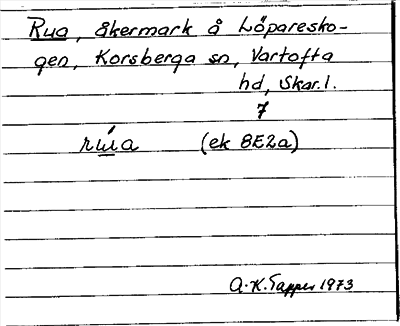 Rua, åkermark å Löparesko-
gen, Korsberga sn, Vartofta
hd, Skar.l.
7
(ek 8E2a)
A-K. Tapper 1973